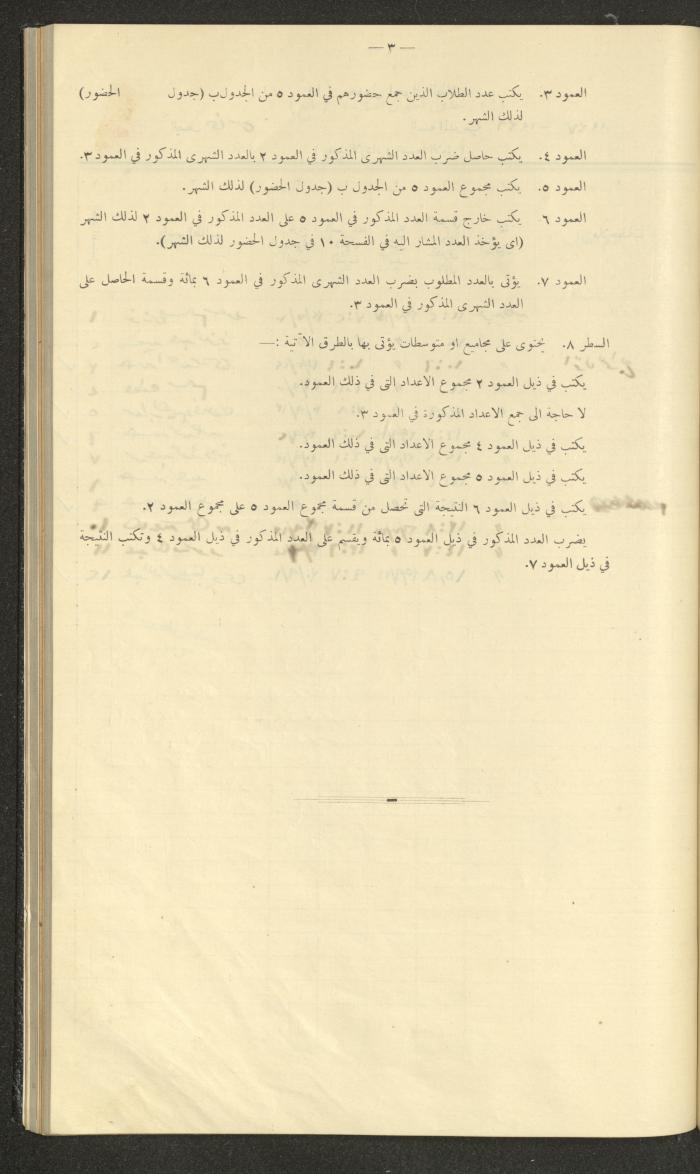 — ٣ —
العمود ٣. يكتب عدد الطلاب الذين جمع حضورهم في العمود ٥ من الجدول ب (جدول الحضور)
لذلك الشهر.
العمود ٤. يكتب حاصل ضرب العدد الشهرى المذكور في العمود ٢ بالعدد الشهرى المذكور في العمود ٣.
العمود ٥. يكتب مجموع العمود ٥ من الجدول ب (جدول الحضور) لذلك الشهر.
العمود ٦. يكتب خارج قسمة العدد المذكور في العمود ٥ على العدد المذكور في العمود ٢ لذلك الشهر
(اى يؤخذ العدد المشار اليه في الفسحة ١٠ في جدول الحضور لذلك الشهر).
العمود ٧. يؤتى بالعدد المطلوب بضرب العدد الشهرى المذكور في العمود ٦ بمائة وقسمة الحاصل على
العدد الشهرى المذكور في العمود ٣.
السطر ٨. يحتوى على مجاميع او متوسطات يؤتى بها بالطرق الآتية :—
يكتب في ذيل العمود ٢ مجموع الاعداد التى في ذلك العمود.
لا حاجة الى جمع الاعداد المذكورة في العمود ٣.
يكتب في ذيل العمود ٤ مجموع الاعداد التى في ذلك العمود.
يكتب في ذيل العمود ٥ مجموع الاعداد التى في ذلك العمود.
يكتب في ذيل العمود ٦ النتيجة التى تحصل من قسمة مجموع العمود ٥ على مجموع العمود ٢.
يضرب العدد المذكور في ذيل العمود ٥ بمائة ويقسم على العدد المذكور في ذيل العمود ٤ وتكتب النتيجة
في ذيل العمود ٧.